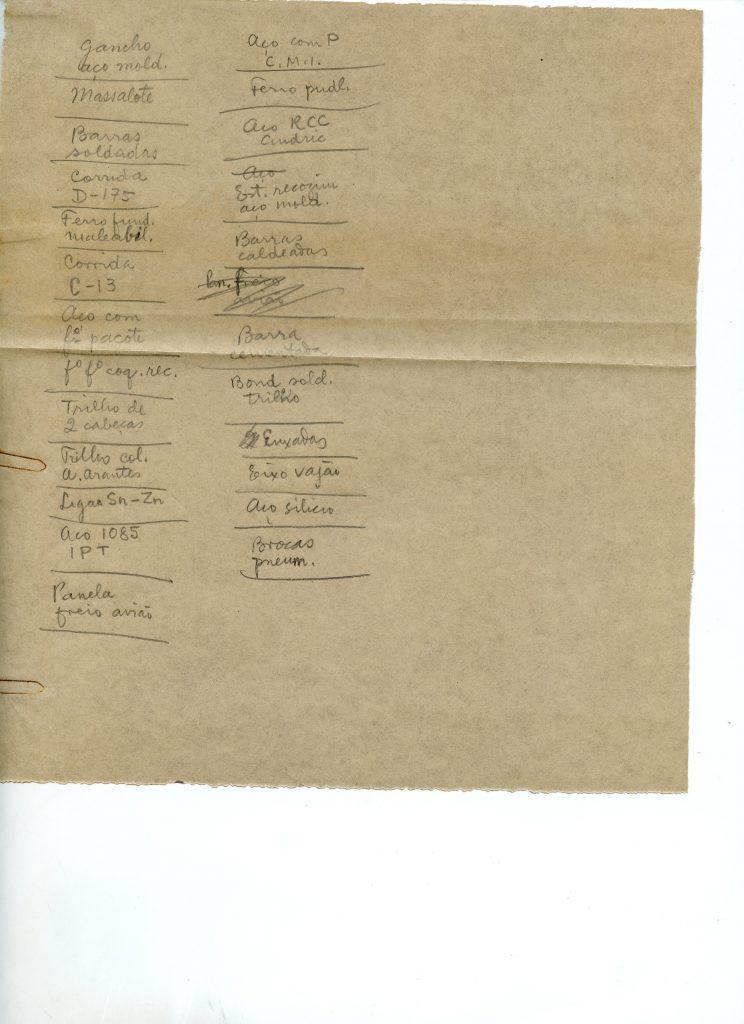 Gancho
aço mold.
Massalote
Barras
soldadas
Corrida
D-175
Ferro fund.
maleabil.
Corrida
C-13
Aço com
fº pacote
fº fº coq. rec.
Trilho de
2 cabeças
Trilho col.
A. Arantes
Ligas Sn-Zn
Aço 1085
IPT
Panela
freio avião
Aço com P
C.M.I.
Ferro pudl.
Aço RCC
Aço
Est. recozim
aço mold.
Barras
caldeadas
Pan. freio
avião
Barra
cementada
Bond sold.
trilho
Enxadas
Eixo vagão
Aço silicio
Brocas
pneum.